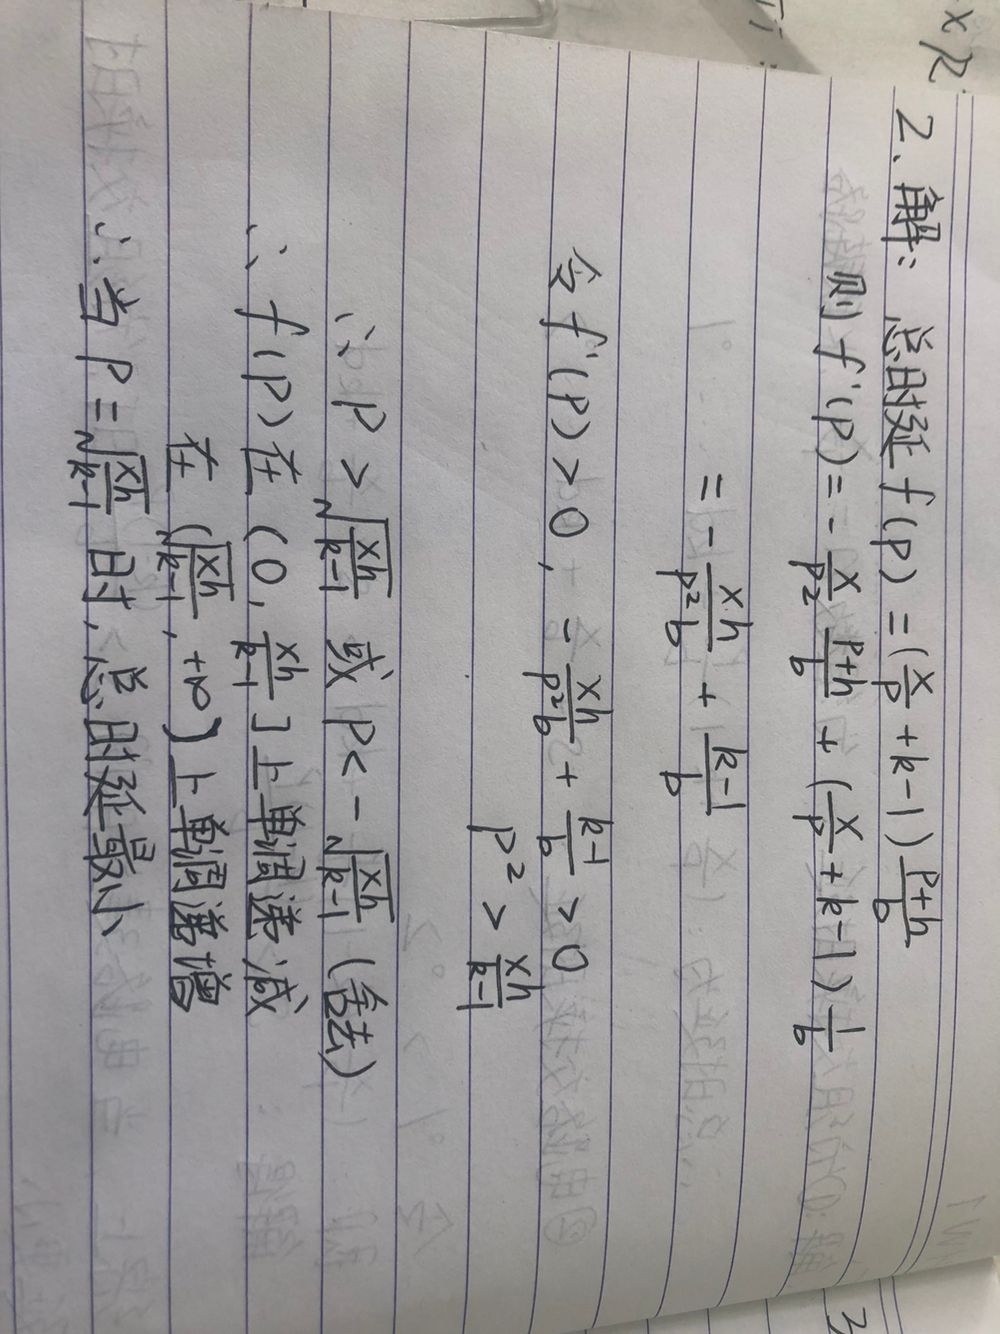 2、解：总时延 f(p) = (x/p + k-1) (p+h)/b
则 f'(p) = - x/p² (p+h)/b + (x/p + k-1) 1/b
= - xh/p²b + (k-1)/b
令 f'(p) > 0, - xh/p²b + (k-1)/b > 0
p² > xh/(k-1)
∴ p > √(xh/(k-1)) 或 p < - √(xh/(k-1)) (舍去)
∴ f(p) 在 (0, xh/(k-1)] 上单调递减
在 (√(xh/(k-1)), +∞) 上单调递增
∴ 当 p = √(xh/(k-1)) 时, 总时延最小
3